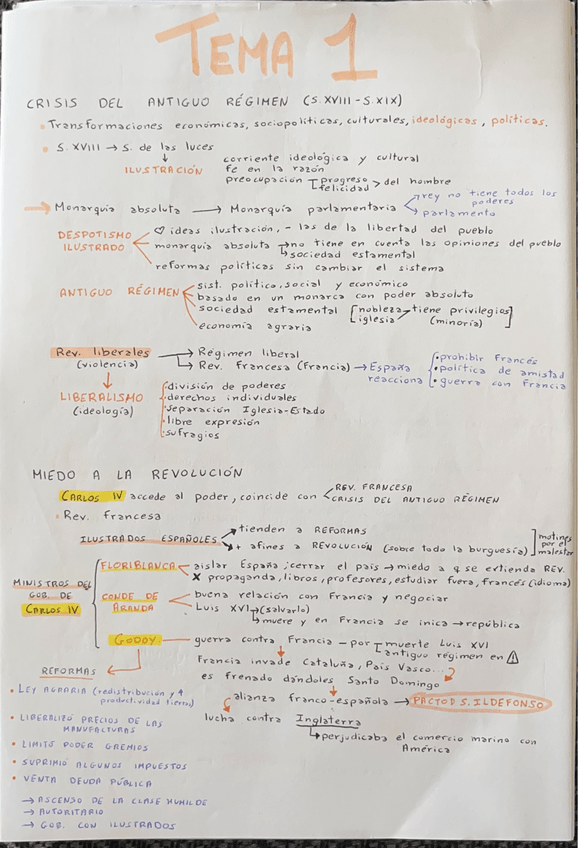 TEMA 1
CRISIS DEL ANTIGUO RÉGIMEN (S.XVIII-S.XIX)
• Transformaciones económicas, sociopolíticas, culturales, ideológicas, políticas.
• S. XVIII → S. de las luces
↓
ILUSTRACIÓN
corriente ideológica y cultural
fe en la razón
preocupación progreso felicidad > del hombre
→ Monarquía absoluta → Monarquía parlamentaria
rey no tiene todos los poderes
parlamento
DESPOTISMO ILUSTRADO
♡ ideas ilustración, - las de la libertad del pueblo
monarquía absoluta → no tiene en cuenta las opiniones del pueblo
↳ sociedad estamental
reformas políticas sin cambiar el sistema
ANTIGUO RÉGIMEN
sist. político, social y económico
basado en un monarca con poder absoluto
sociedad estamental [nobleza iglesia → tiene privilegios (minoría)]
economía agraria
Rev. liberales (violencia)
→ Régimen liberal
→ Rev. Francesa (Francia) → España reacciona
• prohibir Francés
• política de amistad
• guerra con Francia
↓
LIBERALISMO (ideología)
• división de poderes
• derechos individuales
• separación Iglesia-Estado
• libre expresión
• sufragios
MIEDO A LA REVOLUCIÓN
CARLOS IV accede al poder, coincide con
REV. FRANCESA
CRISIS DEL ANTIGUO RÉGIMEN
• Rev. francesa
ILUSTRADOS ESPAÑOLES
tienden a REFORMAS
+ afines a REVOLUCIÓN (sobre todo la burguesía)
] motines por el malestar
MINISTROS DEL GOB. DE CARLOS IV
FLORIBLANCA
aislar España; cerrar el país → miedo a q se extienda REV.
X propaganda, libros, profesores, estudiar fuera, francés (idioma)
CONDE DE ARANDA
buena relación con Francia y negociar
Luis XVI → (salvarlo)
↳ muere y en Francia se inica → república
GODOY
guerra contra Francia - por [muerte Luis XVI
antiguo régimen en ⚠
Francia invade Cataluña, País Vasco...
es frenado dándoles Santo Domingo
alianza franco-española → PACTO D S. ILDEFONSO
lucha contra Inglaterra
↳ perjudicaba el comercio marino con América
REFORMAS
• LEY AGRARIA (redistribución y ↑ productividad tierra)
• LIBERALIZÓ PRECIOS DE LAS MANUFACTURAS
• LIMITÓ PODER GREMIOS
• SUPRIMIÓ ALGUNOS IMPUESTOS
• VENTA DEUDA PÚBLICA
→ ASCENSO DE LA CLASE HUMILDE
→ AUTORITARIO
→ GOB. CON ILUSTRADOS